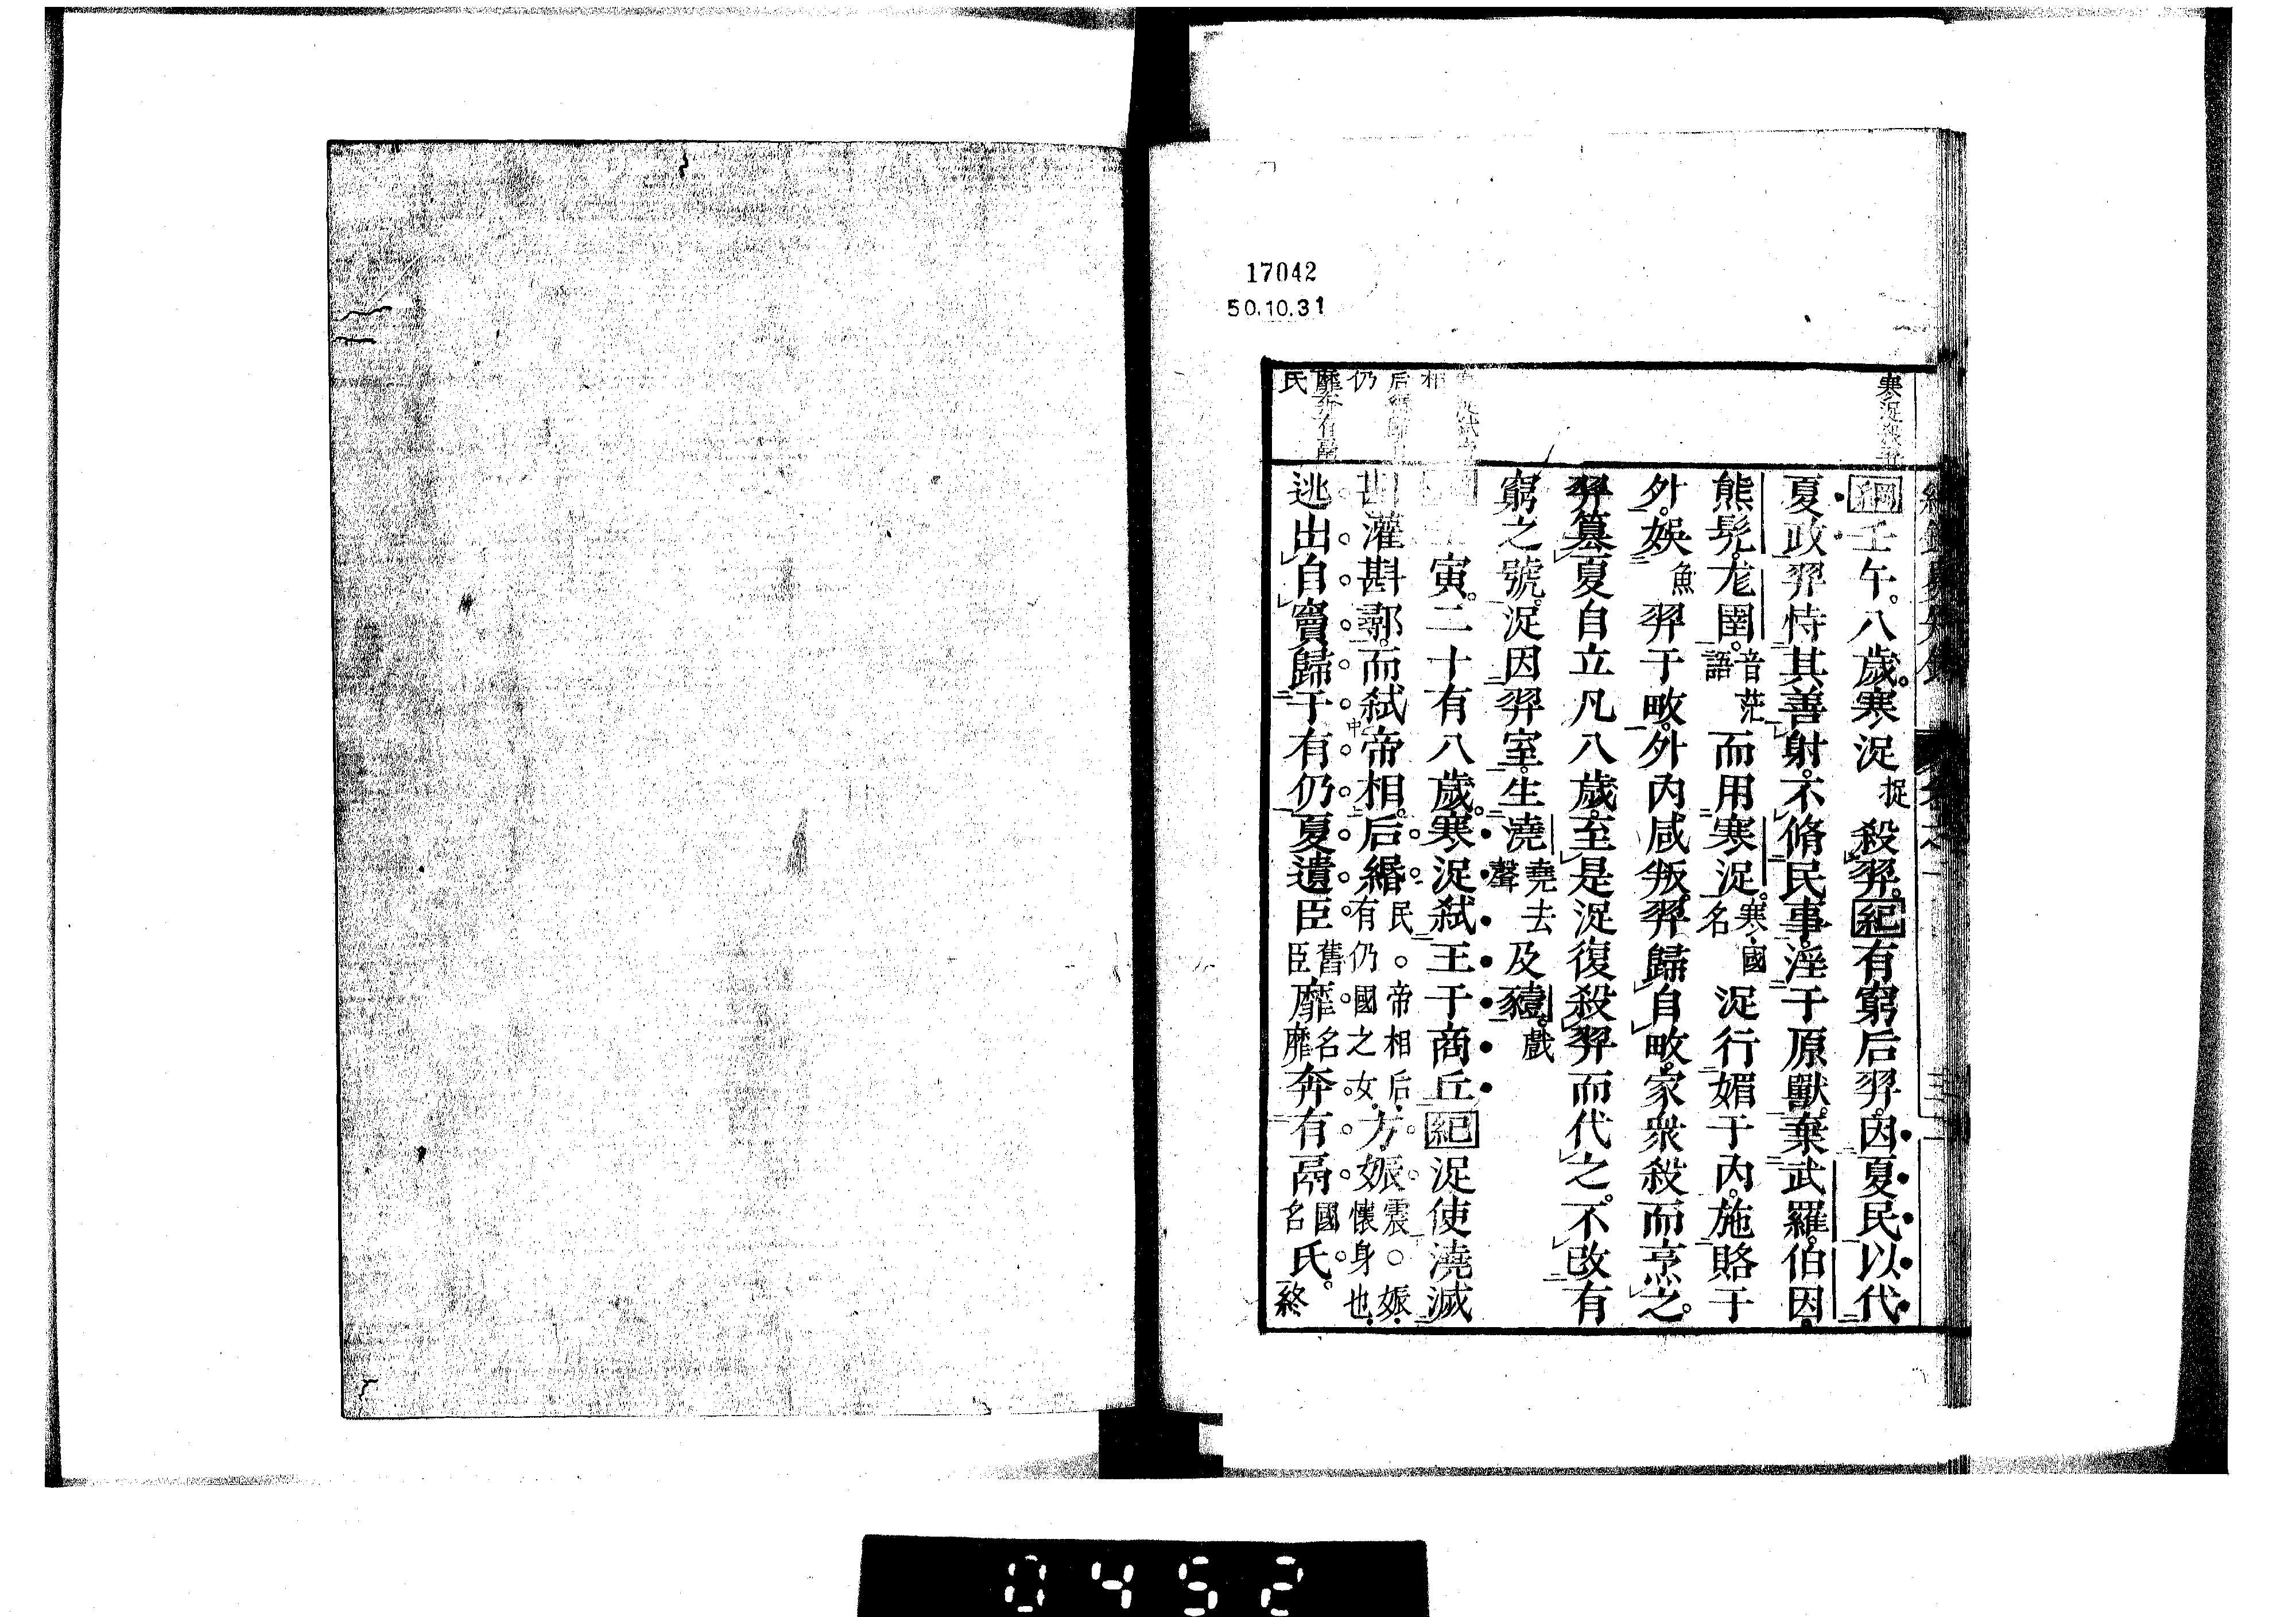 17042
50.10.31
寒浞殺羿
綱壬午八歲寒浞捉殺羿紀有窮后羿因夏民以代
夏政羿恃其善射不脩民事淫于原獸棄武羅伯因
熊髡尨圉音茫語而用寒浞寒國名浞行媚于內施賂于
外娛魚羿于畋外內咸叛羿歸自畋家衆殺而烹之
羿篡夏自立凡八歲至是浞復殺羿而代之不改有
窮之號浞因羿室生澆堯去聲及豷戲
寅二十有八歲寒浞弒王于商丘紀浞使澆滅
斟灌斟鄩而弒帝相后緡民○帝相后有仍國之女方娠震○娠懷身也
逃出自竇歸于有仍夏遺臣舊臣靡名靡奔有鬲國名氏終
相
仍
靡奔有鬲
氏
0452